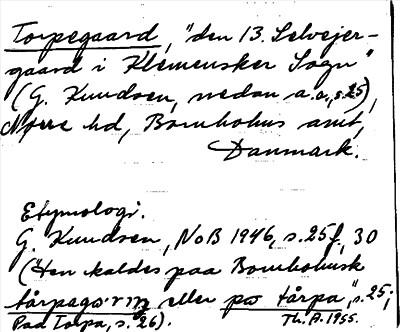 Torpegaard, "den 13. Selvejer-
gaard i Klemensker Sogn"
(G. Knudsen, nedan a.a., s.25),
Nørre hd, Bornholms amt,
Danmark.
Etymologi.
G. Knudsen, NoB 1946, s.25f, 30
("Den kaldes paa Bornholmsk
tårpagorm eller pa tårpa", s.25;
Paa Torpa, s.26). Th.A. 1955.